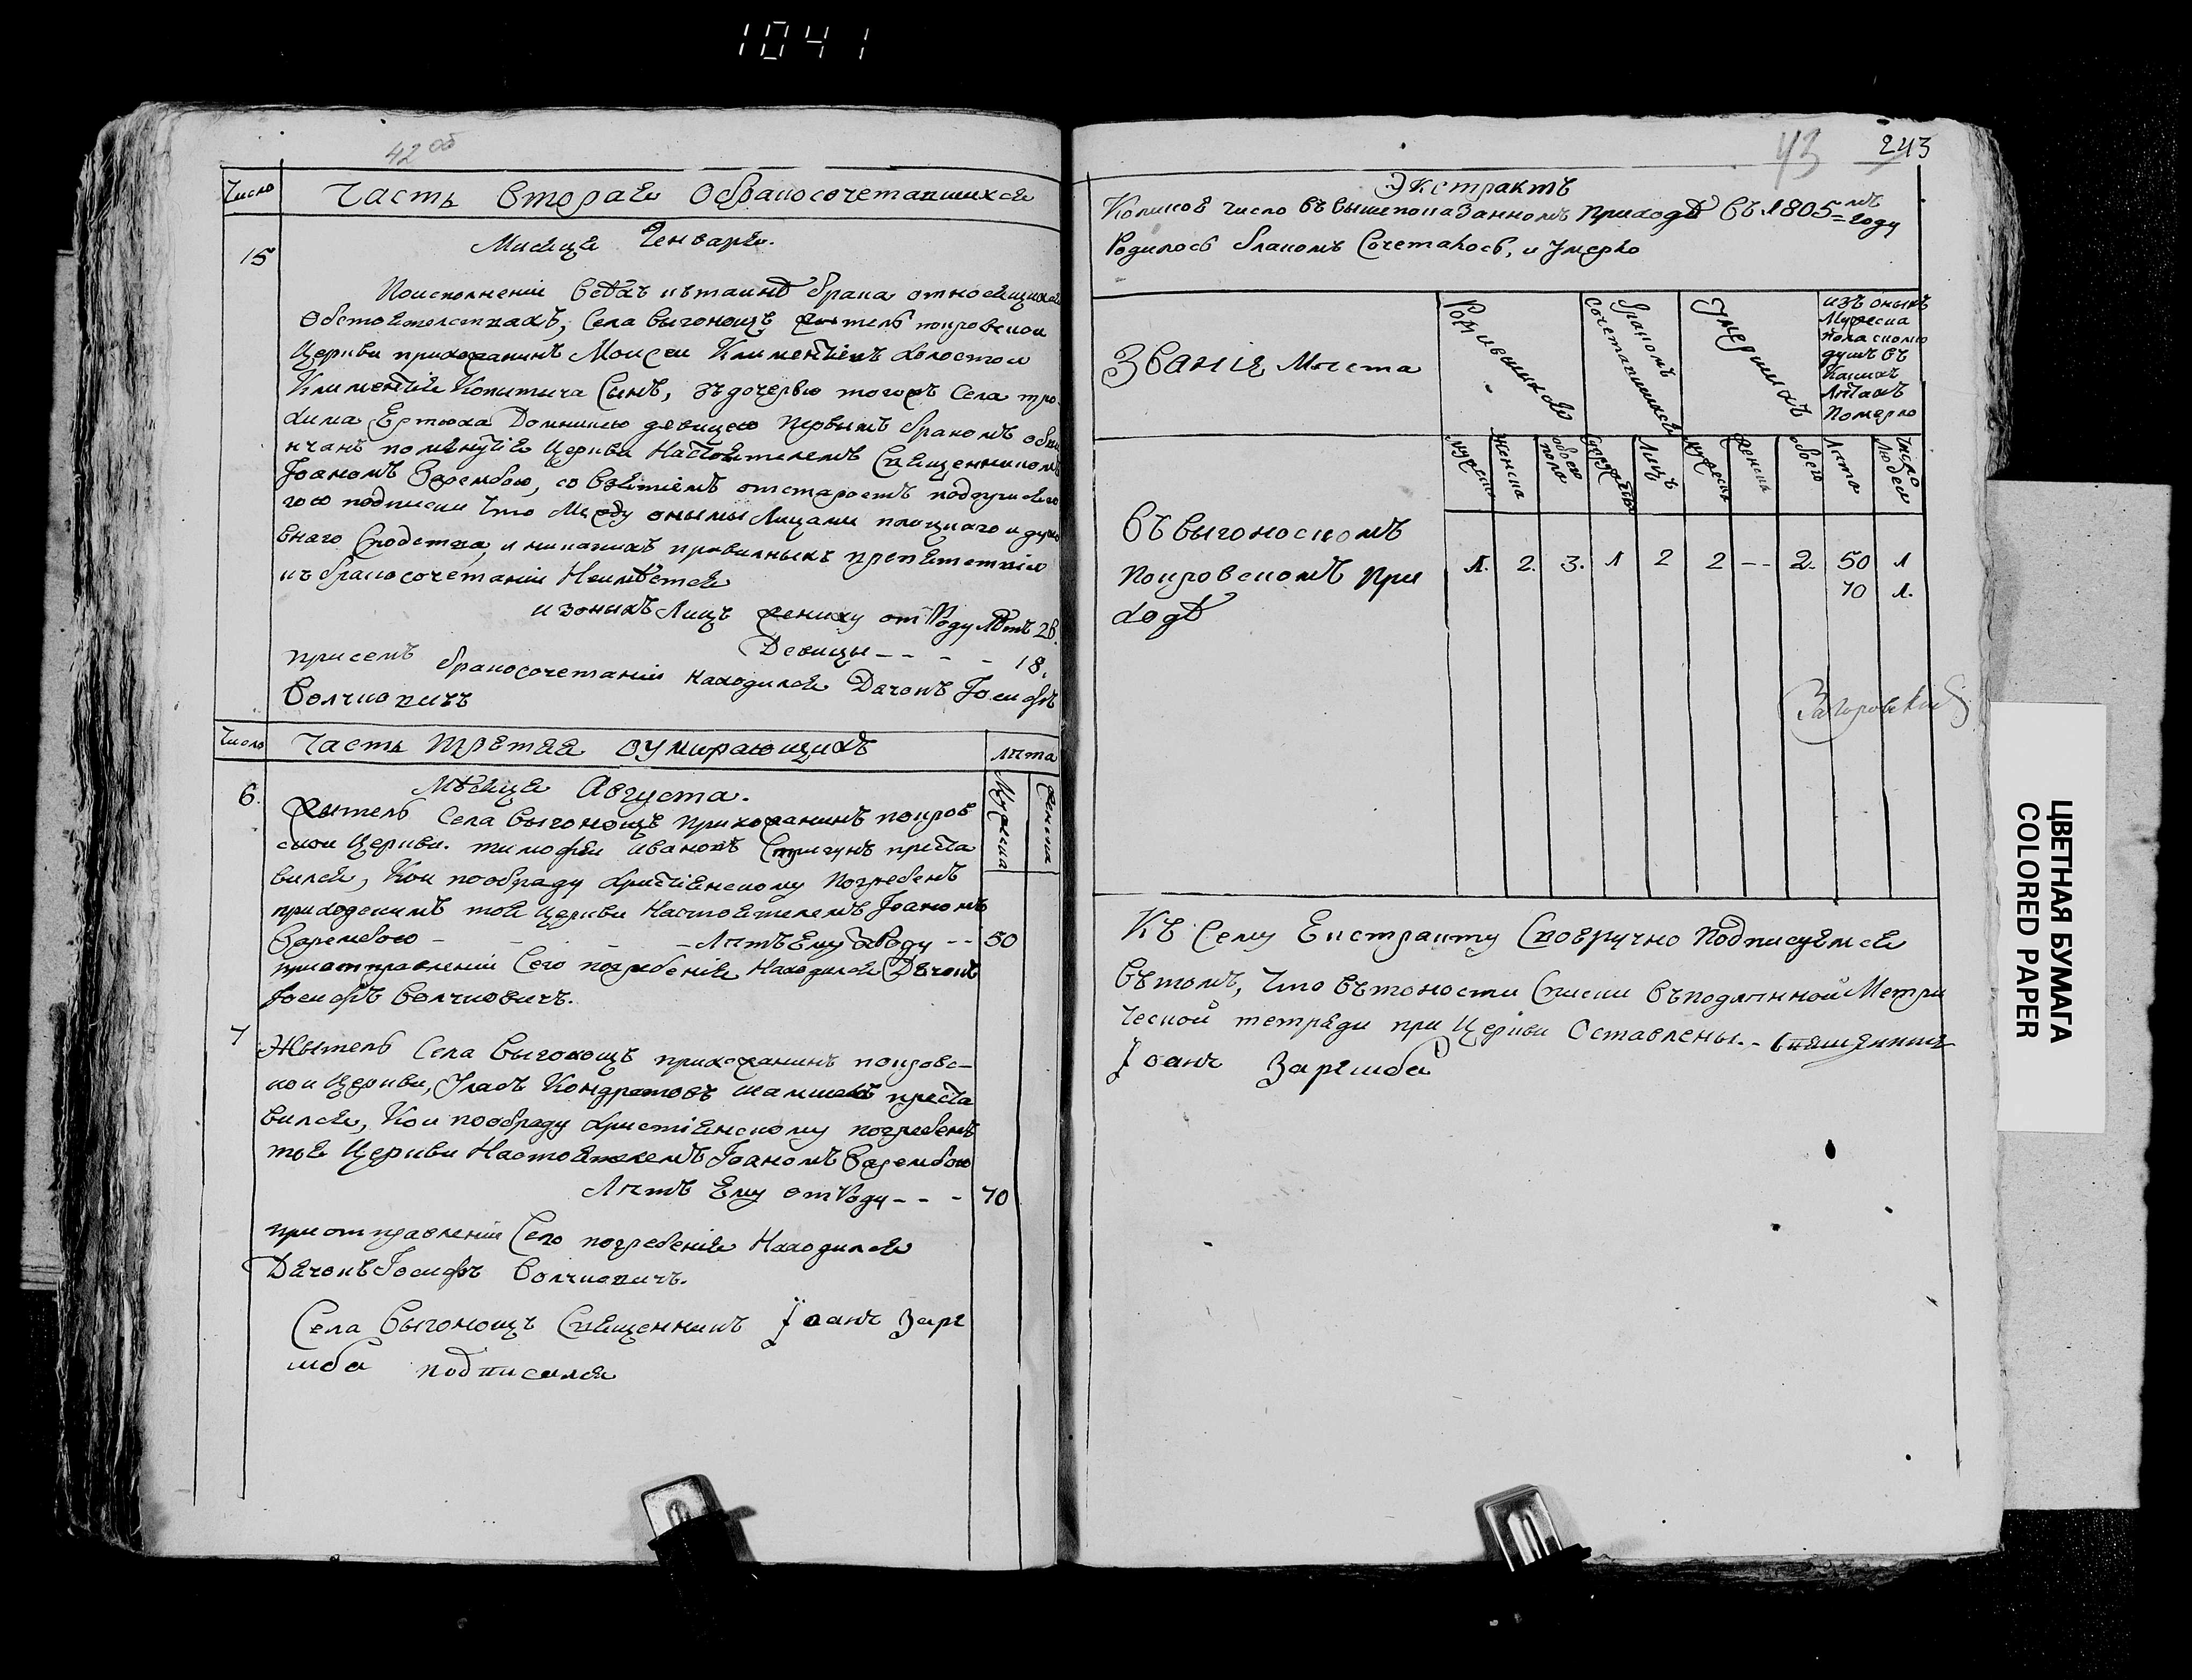 1041
42 об
Число
Часть Вторая Обракосочетавшихся
15
Мисяца Генваря.
Поисполнении Всѣхъ къ таинѣ брака относящихся
Обстоятелствахъ, Села Выгонощъ житель покровской
Церкви прихожанинъ Моисей Климентіевъ Холостои
Климентія Копитича Сынъ, зъ дочерью тогожъ Села тро
хима Ертюха Домникою девицею первымъ бракомъ обви
нчанъ помянутія Церкви Настоятелемъ Священникомъ
Іоаномъ Зарембою, со Взятіемъ отстаростъ подприсягою
подписки Что Между оными Лицами плоцкаго и духо
внаго Сродства, и никакихъ правилныхъ препятствіи
къ бракосочетаніи Неимѣется
изоныхъ Лицъ жениху от Роду Лѣтъ 28.
Девицы - - - - 18.
присемъ бракосочетаніи Находился Дячокъ Іосифъ
Волчковичъ
Число
Часть третяя оумирающихъ
лѣта
Мужеска
Женска
6.
Мѣсяца Августа.
Житель Села Выгонощъ прихожанинъ покров
скои Церкви. тимофеи Ивановъ Стригунъ преста
вился, Кои пообряду христіянскому Погребенъ
приходскимъ тоя Церкви Настоятелемъ Іоаномъ
Зарембою - - - - Лѣтъ Ему от Роду - - 50
приотправленіи Сего погребенія Находился Дячокъ
Іосифъ Волчковичъ.
7
Жытель Села Выгонощъ прихожанинъ покровс-
кои Церкви, Уласъ Кондратовъ преста
вился, Кои пообряду христіянскому погребенъ
тоя Церкви Настоятелемъ Іоаномъ Зарембою
Лѣтъ Ему от Роду - - - 70
приотправленіи Сего погребенія Находился
Дячокъ Іосифъ Волчковичъ.
Села Выгонощъ Священникъ Іоанъ Заре
мба подписался
43
243
Экстрактъ
Коликое число Въ вышепоказанномъ приходѣ Въ 1805=мъ году
Родилось бракомъ Сочеталось, и Умерло
Званія Мѣста
Родившихся
бракомъ Сочетавшихся
Умершихъ
изъ оныхъ
Мужеска
пола сколко
душъ въ
Какихъ
Лѣтахъ
Померло
мужеска
женска
обоего пола
Лицъ
мужеска
женска
обоего
Лѣта
Число Людеи
Въ Выгоноскомъ
покровскомъ при
ходѣ
1. 2. 3. 1 2 2 -- 2. 50 1
70 1.
Загоровскій
Къ Сему Екстракту Своеручно Подписуемся
Вътомъ, Что Вътоности Списки Въподлинной Метри
ческой тетради при Церкви Оставлены. - Священникъ
Іоанъ Заремба
ЦВЕТНАЯ БУМАГА
COLORED PAPER